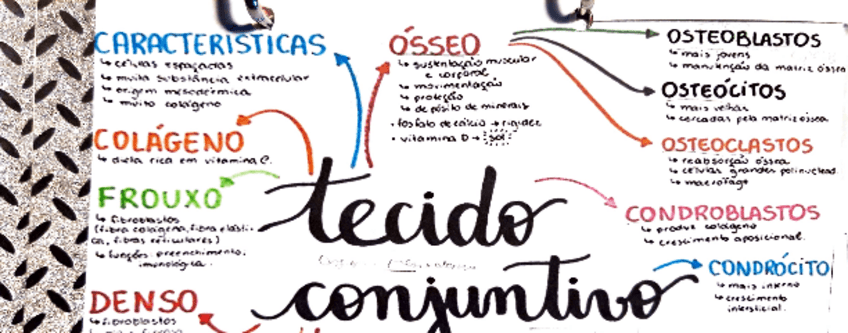 CARACTERISTICAS
↳ células espaçadas
↳ muita substância extracelular
↳ origem mesodérmica
↳ muito colágeno
COLÁGENO
↳ dieta rica em vitamina C.
FROUXO
↳ fibroblastos
(fibra colágena, fibra elásti-
ca, fibras reticulares)
↳ funções: preenchimento,
imunológica.
DENSO
↳ fibroblastos
ÓSSEO
↳ sustentação muscular
e corporal
↳ movimentação
↳ proteção
↳ depósito de minerais
• fosfato de cálcio → rigidez
• vitamina D → sol
tecido
conjuntivo
OSTEOBLASTOS
↳ mais jovens
↳ manutenção da matriz óssea
OSTEÓCITOS
↳ mais velhas
↳ cercadas pela matriz óssea
OSTEOCLASTOS
↳ reabsorção óssea
↳ células grandes polinuclead.
↳ macrófago
CONDROBLASTOS
↳ produz colágeno
↳ crescimento aposicional.
CONDRÓCITO
↳ mais interno
↳ crescimento
intersticial.